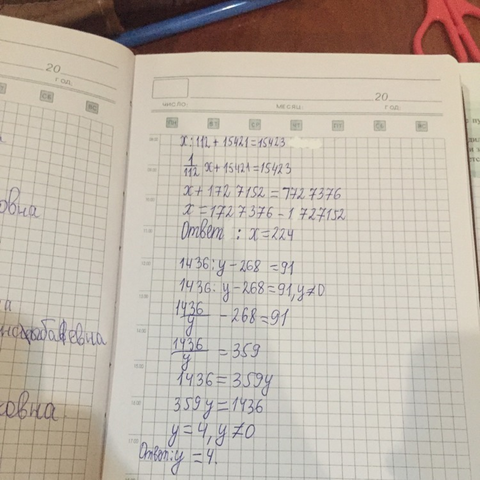 20
год:
20
ЧИСЛО:
МЕСЯЦ:
год:
x:112+15421=15423
1/112 x+15421=15423
x+1727152=1727376
x=1727376-1727152
Ответ: x=224
1436:y-268=91
1436:y-268=91, y≠0
1436/y -268=91
1436/y =359
1436=359y
359y=1436
y=4, y≠0
Ответ: y=4.
овна
евна
ховна